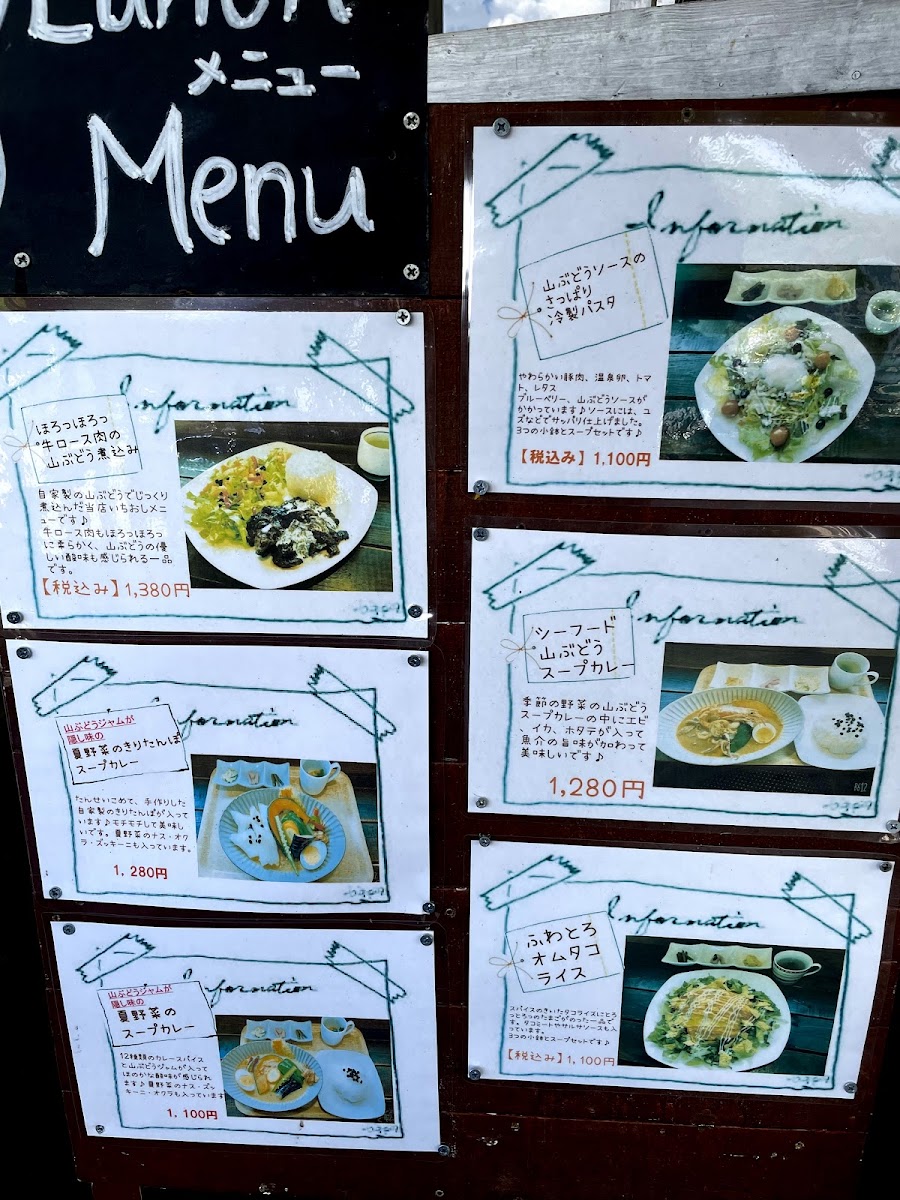 Lunch
メニュー
Menu
Information
ほろっほろっ
牛ロース肉の
山ぶどう煮込み
自家製の山ぶどうでじっくり
煮込んだ当店いちおしメニ
ューです♪
牛ロース肉もほろっほろっ
に柔らかく、山ぶどうの優
しい酸味も感じられる一品
です。
【税込み】1,380円
Information
山ぶどうジャムが
隠し味の
夏野菜のきりたんぽ
スープカレー
たんせいこめて、手作りした
自家製のきりたんぽが入って
います♪モチモチして美味し
いです。夏野菜のナス・オク
ラ・ズッキーニも入っています。
1,280円
Information
山ぶどうジャムが
隠し味の
夏野菜の
スープカレー
12種類のカレースパイス
と山ぶどうジャムが入って
ほのかな酸味が感じられ
ます♪夏野菜のナス・ズッ
キーニ・オクラも入っています
1,100円
Information
山ぶどうソースの
さっぱり
冷製パスタ
やわらかい豚肉、温泉卵、トマ
ト、レタス
ブルーベリー、山ぶどうソースが
かかっています♪ソースには、ユ
ズなどでサッパリ仕上げました。
3つの小鉢とスープセットです♪
【税込み】1,100円
Information
シーフード
山ぶどう
スープカレー
季節の野菜の山ぶどう
スープカレーの中にエビ
、イカ、ホタテが入って
魚介の旨味が加わって
美味しいです♪
1,280円
Information
ふわとろ
オムタコ
ライス
スパイスのきいたタコライスにとろ
っとろっのたまごがのった一品で
す。タコミートやサルサソースも入
っています。
3つの小鉢とスープセットです♪
【税込み】1,100円